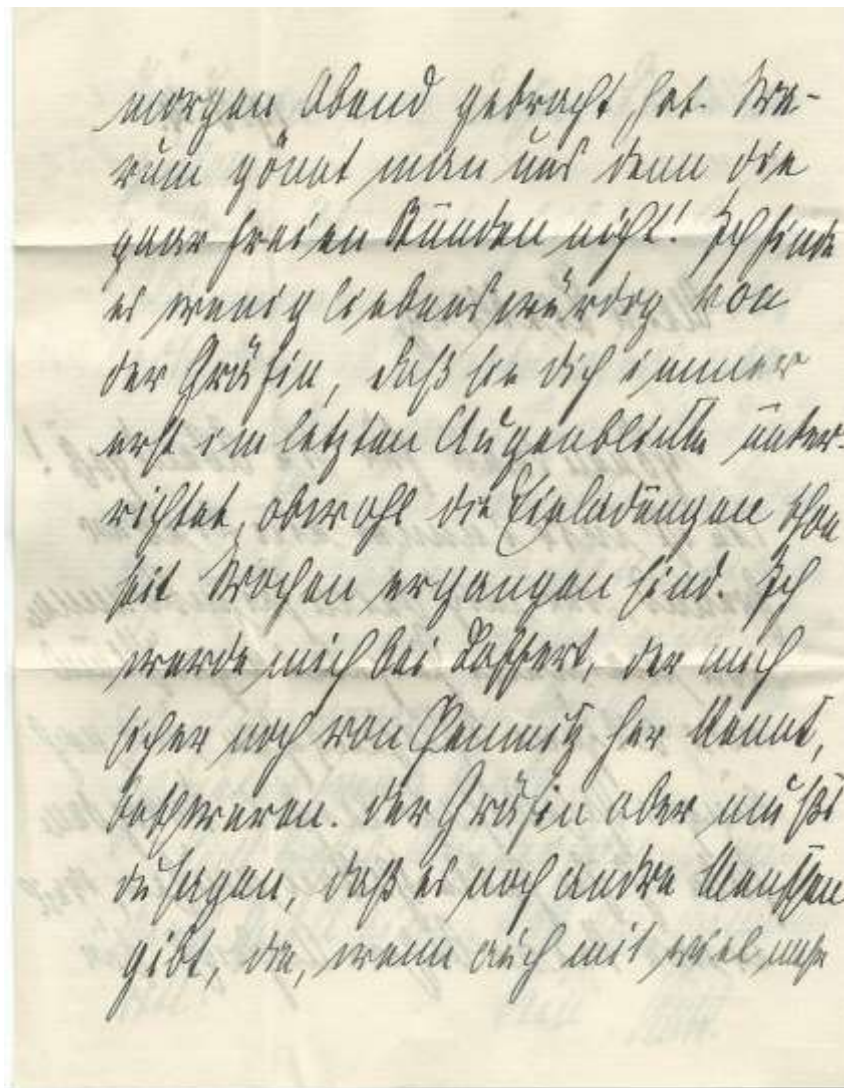 morgen Abend gebracht hat. Wa-
rum gönnt man uns denn die
paar freien Stunden nicht! Ich finde
es wenig liebenswürdig von
der Gräfin, daß sie dich immer
erst im letzten Augenblicke unter-
richtet, obwohl die Einladungen schon
seit Wochen ergangen sind. Ich
werde mich bei Laffert, der mich
sicher noch von Chemnitz her kennt,
beschweren. Der Gräfin aber mußt
du sagen, daß es noch andre Menschen
gibt, die, wenn auch mit viel mehr